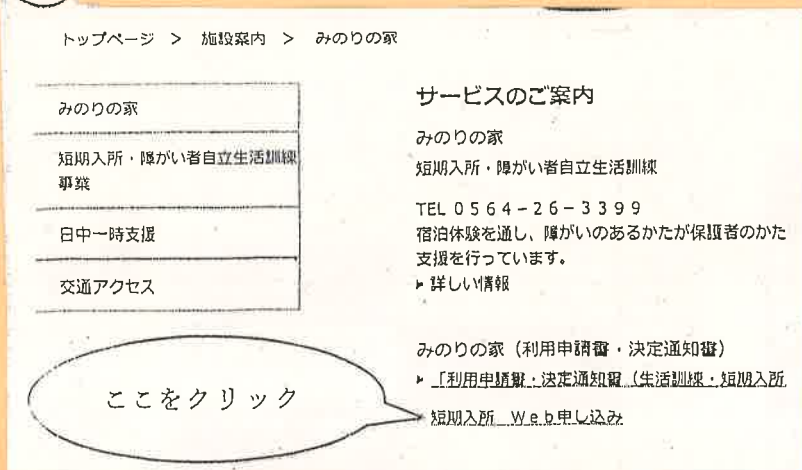 トップページ > 施設案内 > みのりの家
みのりの家
短期入所・障がい者自立生活訓練
事業
日中一時支援
交通アクセス
サービスのご案内
みのりの家
短期入所・障がい者自立生活訓練
TEL 0564-26-3399
宿泊体験を通し、障がいのあるかたが保護者のかた
支援を行っています。
詳しい情報
みのりの家(利用申請書・決定通知書)
「利用申請書・決定通知書(生活訓練・短期入所
短期入所 Web申し込み
ここをクリック